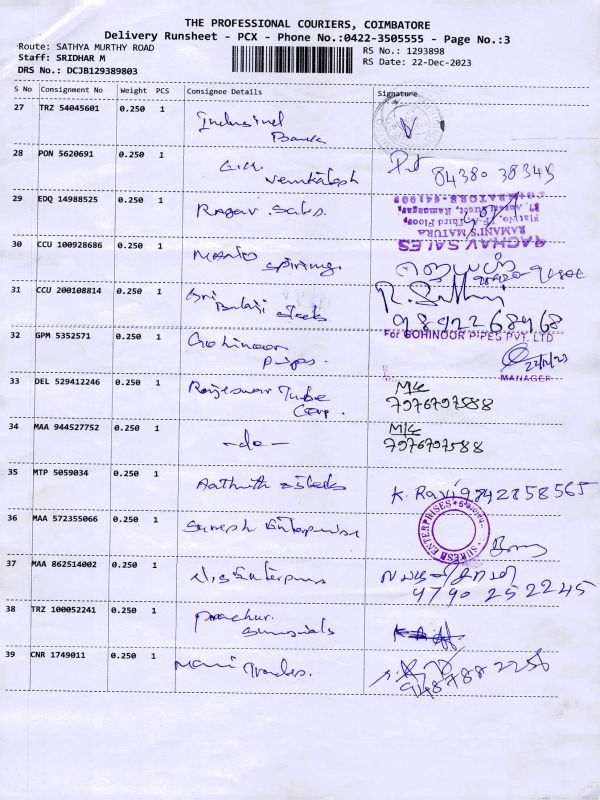 THE PROFESSIONAL COURIERS, COIMBATORE
Delivery Runsheet - PCX - Phone No.:0422-3505555 - Page No.:3
Route: SATHYA MURTHY ROAD
RS No.: 1293898
Staff: SRIDHAR M
RS Date: 22-Dec-2023
DRS No.: DCJB129389803
S No Consignment No Weight PCS Consignee Details Signature
27 TRZ 54045601 0.250 1
Indusind
Bank
28 PON 5620691 0.250 1
Venkatesh
84380 38345
29 EDQ 14988525 0.250 1 Ragav Sales.
RAGHAV SALES
RAMANI'S MATURA
Flat No. Third Floor,
Street, Ramnagar,
30 CCU 100928686 0.250 1
spining.
31 CCU 200108814 0.250 1 Sri
Balaji steels
9892268968
32 GPM 5352571 0.250 1 Gohinoor
Pipes.
For GOHINOOR PIPES PVT. LTD
22/12/23
MANAGER
33 DEL 529412246 0.250 1 Rajeswar Tube
Corp.
7976797588
34 MAA 944527752 0.250 1 -do-
7976797588
35 MTP 5059034 0.250 1 Aathith steels K. Ravi 9842858565
36 MAA 572355066 0.250 1 Suresh Enterprise
SURESH ENTERPRISES
37 MAA 862514002 0.250 1 Enterprises
9790 252245
38 TRZ 100052241 0.250 1
39 CNR 1749011 0.250 1 Mani Traders.
948788 2256